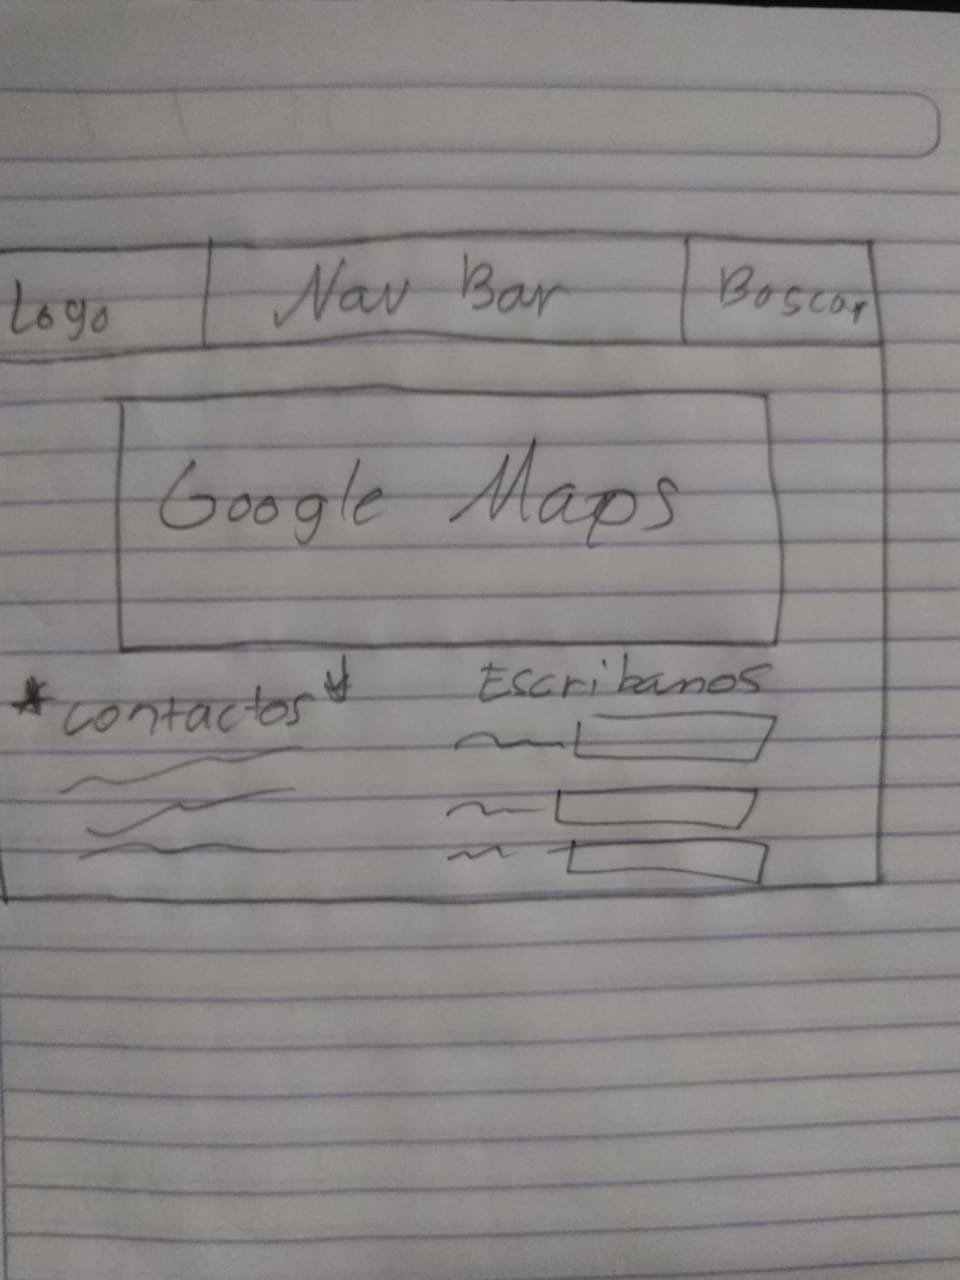 Logo Nav Bar Boscar
Google Maps
* contactos * Escribanos